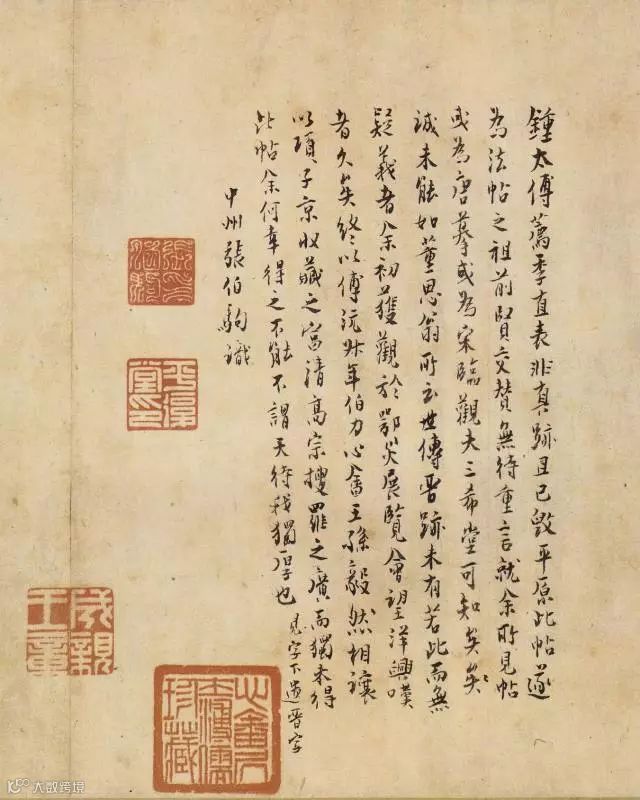 鍾太傅薦季直表非真跡且已毀平原此帖遂
為法帖之祖前賢交贊無待重言就余所見帖
或為唐摹或為宋臨觀夫三希堂可知矣矣
誠未能如董思翁所云世傳晉跡未有若此而無
疑義者余初獲觀於鄂災展覽會望洋興嘆
者久矣終以傅沅叔年伯力心畬王孫毅然相讓
以項子京收藏之富清高宗搜羅之廣而獨未得
此帖余何幸得之不能不謂天待我獨厚也 見字下遺晉字
中州張伯駒識
平復堂印
成親王章
珍藏
大数跨境